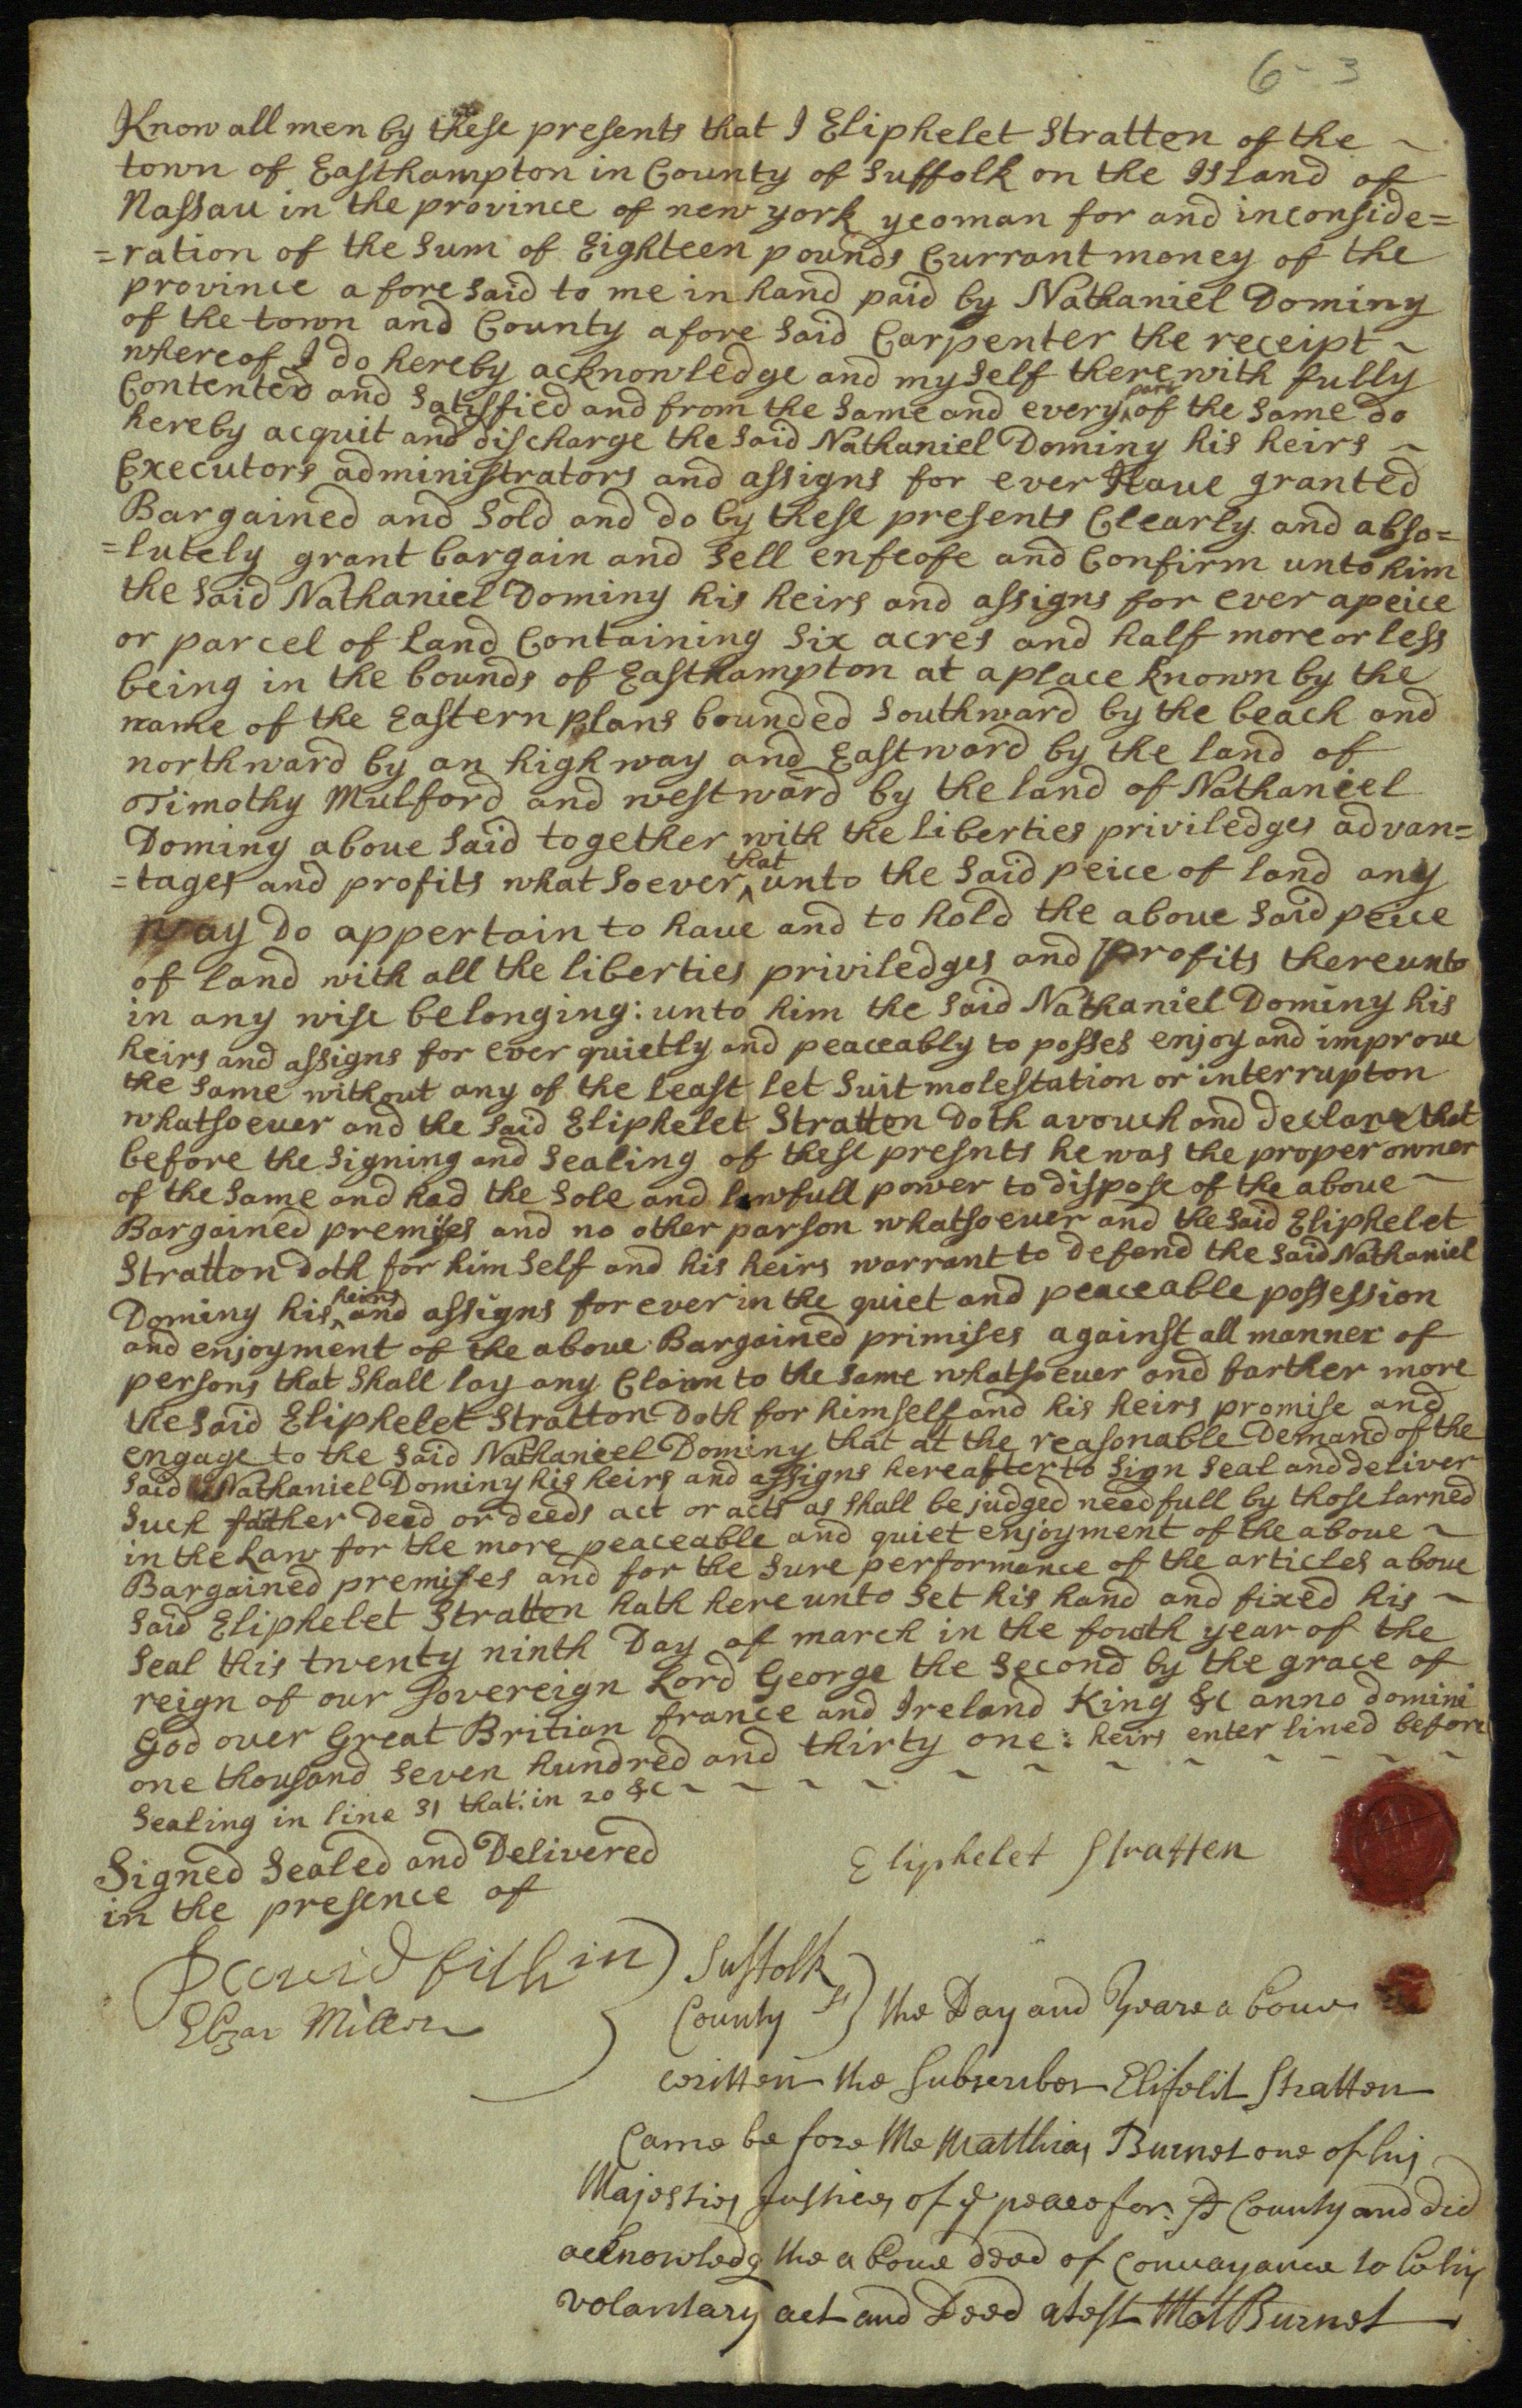 6-3
Know all men by these presents that I Eliphelet Stratten of the ~
town of Easthampton in County of Suffolk on the Island of
Nassau in the province of new york yeoman for and inconside=
=ration of the Sum of Eighteen pounds Currant money of the
province afore said to me in hand paid by Nathaniel Dominy
of the town and County afore said Carpenter the receipt ~
whereof I do hereby acknowledge and my self therewith fully
Contented and Satisfied and from the same and every part of the same do
hereby acquit and discharge the said Nathaniel Dominy his heirs ~
Executors administrators and assigns for ever Have granted
Bargained and Sold and do by these presents Clearly and abso=
=lutely grant bargain and Sell enfeofe and Confirm unto him
the said Nathaniel Dominy his heirs and assigns for ever a peice
or parcel of land Containing Six acres and half more or less
being in the bounds of Easthampton at a place known by the
name of the Eastern plans bounded Southward by the beach and
northward by an high way and Eastward by the land of
Timothy Mulford and westward by the land of Nathaniel
Dominy aboue said together with the liberties priviledges advan=
=tages and profits what soever that unto the said peice of land any
way do appertain to haue and to hold the aboue said peice
of land with all the liberties priviledges and profits thereunto
in any wise belonging: unto him the said Nathaniel Dominy his
heirs and assigns for ever quietly and peaceably to posses enjoy and improue
the same without any of the least let Suit molestation or interrupton
whatsoeuer and the said Eliphelet Stratten doth avouch and declare that
before the Signing and Sealing of these presnts he was the proper owner
of the same and had the Sole and lawfull power to dispose of the aboue ~
Bargained premises and no other parson whatsoeuer and the said Eliphelet
Stratton doth for him self and his heirs warrant to defend the said Nathaniel
Dominy his heirs and assigns for ever in the quiet and peaceable possession
and enjoyment of the aboue Bargained primises against all manner of
persons that shall lay any Claim to the same whatsoeuer and farther more
the said Eliphelet Stratton doth for himself and his heirs promise and
engage to the said Nathaniel Dominy that at the reasonable Demand of the
said Nathaniel Dominy his heirs and assigns hereafter to Sign Seal and deliver
Such father deed or deeds act or acts as shall be judged needfull by those larned
in the Law for the more peaceable and quiet enjoyment of the aboue ~
Bargained premises and for the Sure performance of the articles aboue
said Eliphelet Stratten hath here unto Set his hand and fixed his ~
Seal this twenty ninth Day of march in the fouth year of the
reign of our Sovereign Lord George the Second by the grace of
God over Great Britian france and Ireland King &c anno domini
one thousand Seven hundred and thirty one: heirs enter lined before
Sealing in line 31 that: in 20 &c ~ ~ ~ ~ ~ ~ ~ ~ ~ ~
Signed Sealed and Delivered
in the presence of
Eliphelet Stratten
David fithin
Elzar Miller
Suffolk
County ss the Day and Yeare aboue
written the Subscriber Elifelit Stratten
Came be fore Me Matthias Burnet one of his
Majesties Justices of ye peace for: sd County and did
acknowledg the aboue deed of Conuayance to be his
volantary act and Deed atest Mat Burnet